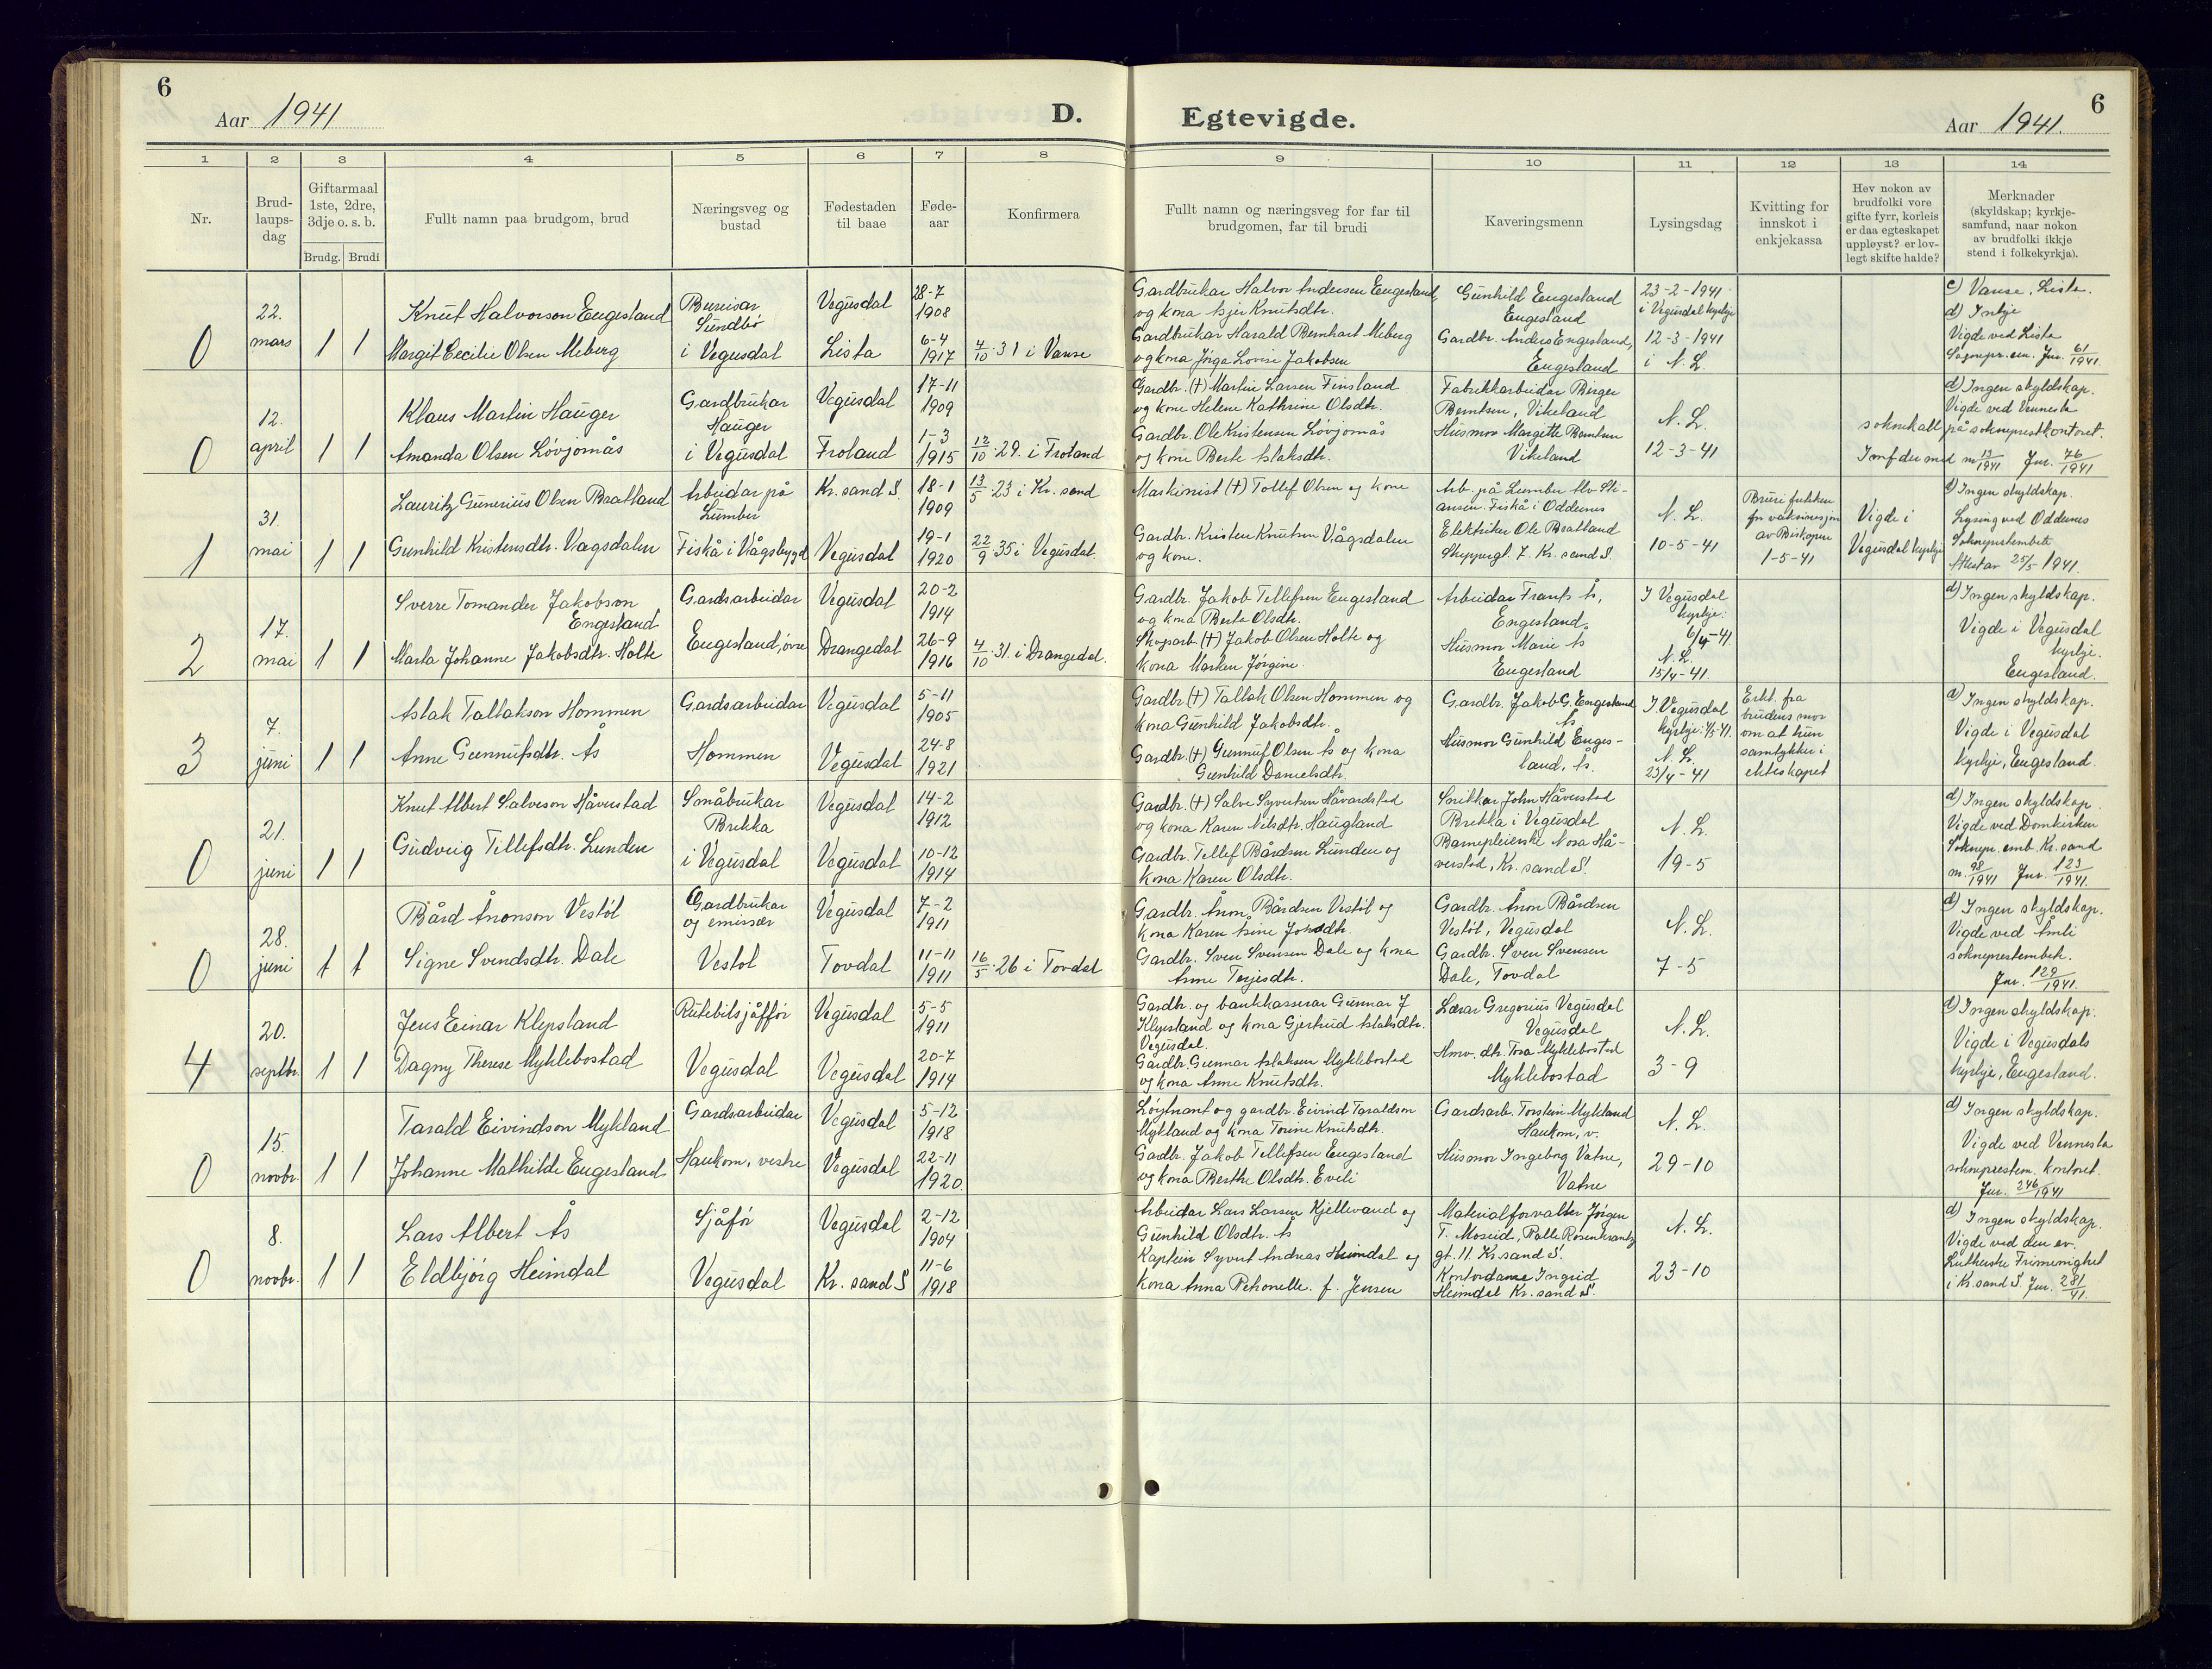 6
Aar 1941
D.
Egtevigde.
Aar 1941.
6
1 2 3 4 5 6 7 8 9 10 11 12 13 14
Nr.
Brud-
laups-
dag
Giftarmaal
1ste, 2dre,
3dje o. s. b.
Brudg. Brudi
Fullt namn paa brudgom, brud
Næringsveg og
bustad
Fødestaden
til baae
Føde-
aar
Konfirmera
Fullt namn og næringsveg for far til
brudgomen, far til brudi
Kaveringsmenn
Lysingsdag
Kvitting for
innskot i
enkjekassa
Hev nokon av
brudfolki vore
gifte fyrr, korleis
er daa egteskapet
uppløyst? er lov-
legt skifte halde?
Merknader
(skyldskap; kyrkje-
samfund, naar nokon
av brudfolki ikkje
stend i folkekyrkja).
0
22.
mars
1 1
Knut Halvorson Engesland
Margit Cecilie Olsen Meberg
Bureisar
Sundbø
i Vegusdal
Vegusdal
Lista
28-7
1908
6-4
1917
4/10 31 i Vanse
Gardbrukar Halvor Andersen Engesland,
og kona Asjer Knutsdtr.
Gardbrukar Harald Bernhart Meberg
og kona Jørga Lovise Jakobsen
Gunhild Engesland
Engesland
Gardbr. Anders Engesland,
Engesland
23-2-1941
i Vegusdal kyrkje
12-3-1941
i N. L.
c) Vanse, Lista.
d) Inkje
Vigde ved Lista
Sognepr. em. Jnr. 61/1941
0
12.
april
1 1
Klaus Martin Hauger
Amanda Olsen Løvjomås
Gardbrukar
Hauger
i Vegusdal
Vegusdal
Froland
17-11
1909
1-3
1915
12/10 29. i Froland
Gardbr. (+) Martin Larsen Finsland
og kone Helene Kathrine Olsdtr.
Gardbr. Ole Kristensen Løvjomås
og kone Berte Aslaksdtr.
Fabrikkarbeidar Birger
Berntsen, Vikeland
Husmor Margitte Berntsen
Vikeland
N. L.
12-3-41
d) Ingen skyldskap.
Vigde ved Vennesla
soknekall på sokneprestkontoret.
m 13/1941 Jnr. 76/1941
1
31.
mai
1 1
Lauritz Gunerius Olsen Braatland
Gunhild Kristensdtr. Vaagsdalen
Arbeidar på
Lumber
Fiskå i Vågsbygd
Kr. sand S.
Vegusdal
18-1
1909
19-1
1920
13/5 23 i Kr. sand
22/9 35 i Vegusdal.
Maskinist (+) Tollef Olsen og kone
Gardbr. Kristen Knutsen Vågsdalen
og kone.
Arb. på Lumber Alv Sti-
ansen. Fiskå i Oddernes
Elektriker Ole Braatland
Skippergt. 7. Kr. sand S.
N. L.
10-5-41
av Biskopen
1-5-41
Vigde i
Vegusdal kyrkje
d) Ingen skyldskap.
Lysing ved Oddernes
Sokneprestembete
Attestar 25/5 1941.
2
17.
mai
1 1
Sverre Tomander Jakobson
Engesland
Marta Johanne Jakobsdtr. Holte
Gardsarbeidar
Engesland, øvre
Vegusdal
Drangedal
20-2
1914
26-9
1916
4/10 31. i Drangedal.
Gardbr. Jakob Tellefsen Engesland
og kona Berta Olsdtr.
Skogarb (+) Jakob Olsen Holte og
kona Marken Jørgine.
Arbeidar Frants Ås,
Engesland.
Husmor Marie Ås
Engesland
I Vegusdal
kyrkje.
6/4-41
N. L.
15/4-41.
d) Ingen skyldskap.
Vigde i Vegusdal
kyrkje.
Engesland.
3
7.
juni
1 1
Aslak Tallakson Hommen
Anne Gunnufsdtr. Ås
Gardsarbeidar
Hommen
Vegusdal
Vegusdal
5-11
1905
24-8
1921
Gardbr. (+) Tallak Olsen Hommen og
kona Gunhild Jakobsdtr.
Gardbr. (+) Gunnuf Olsen Ås og kona
Gunhild Danielsdtr.
Gardbr. Jakob G. Engesland
Ås
Husmor Gunhild Enges-
land, Ås.
I Vegusdal
kyrkje: 4/5-41.
N. L.
23/4-41
Erkl. fra
brudens mor
om at hun
samtykker i
ekteskapet
d) Ingen skyldskap.
Vigde i Vegusdal
kyrkje, Engesland.
0
21.
juni
1 1
Knut Albert Salveson Håverstad
Gudveig Tellefsdtr. Lunden
Småbrukar
Brekka
i Vegusdal
Vegusdal
Vegusdal
14-2
1912
10-12
1914
Gardbr. (+) Salve Syvertsen Håvardstad
og kona Karen Nilsdtr. Haugland
Gardbr. Tellef Bårdsen Lunden og
kona Karen Olsdtr.
Snikkar John Håverstad
Brekka i Vegusdal
Barnepleierske Nora Hå-
verstad, Kr. sand S.
N. L.
19-5
d) Ingen skyldskap.
Vigde ved Domkirken
Soknepr. emb. Kr. sand
m. 98/1941 Jnr. 123/1941.
0
28.
juni
1 1
Bård Ånonson Vestøl
Signe Svendsdtr. Dale
Gardbrukar
og emissær
Vestøl
Vegusdal
Tovdal
7-2
1911
11-11
1911
16/5 26 i Tovdal
Gardbr. Ånon Bårdsen Vestøl og
kona Karen Asine Johsdtr.
Gardbr. Sven Svensen Dale og kona
Anne Terjesdtr.
Gardbr. Ånon Bårdsen
Vestøl, Vegusdal
Gardbr. Sven Svensen
Dale, Tovdal
N. L.
7-5
d) Ingen skyldskap.
Vigde ved Åmli
sokneprestembete.
Jnr. 129/1941.
4
20.
septbr.
1 1
Jens Einar Klepsland
Dagny Therese Myklebostad
Rutebilsjåffør
Vegusdal
Vegusdal
Vegusdal
5-5
1911
20-7
1914
Gardbr. og bankkasserar Gunnar J
Klepsland og kona Gjertrud Aslaksdtr.
Vegusdal.
Gardbr. Gunnar Aslaksen Myklebostad
og kona Anne Knutsdtr.
Lærar Gregorius Vegusdal
Vegusdal
Hmv. dtr. Tora Myklebostad
Myklebostad
N. L.
3-9
d) Ingen skyldskap.
Vigde i Vegusdals
kyrkje, Engesland.
0
15.
novbr.
1 1
Tarald Eivindson Mykland
Johanne Mathilde Engesland
Gardsarbeidar
Haukom, vestre
Vegusdal
Vegusdal
5-12
1918
22-11
1920.
Løytnant og gardbr. Eivind Taraldson
Mykland og kona Torine Knutsdtr.
Gardbr. Jakob Tellefsen Engesland
og kona Berthe Olsdtr. Eveli
Gardsarb. Torstein Mykland
Haukom, v.
Husmor Ingeborg Vatne,
Vatne
N. L.
29-10
d) Ingen skyldskap.
Vigde ved Vennesla
sokneprestem. kontoret.
Jnr. 246/1941
0
8.
novbr.
1 1
Lars Albert Ås
Eldbjørg Heimdal
Sjåfør
Vegusdal
Vegusdal
Kr. sand S
2-12
1904
11-6
1918
Arbeidar Lars Larsen Kjellevand og
Gunhild Olsdtr. Ås
Kaptein Syvert Andreas Heimdal og
kona Anna Petronelle. f. Jensen
Materialforvalter Jørgen
T. Moseid, Palle Rosenkrantz
gt. 11. Kr. sand S.
Kontordame Ingrid
Heimdal Kr. sand S.
N. L.
23-10
d) Ingen skyldskap.
Vigde ved den ev.
Lutherske Frimenighet
i Kr. sand S Jnr. 281/41.